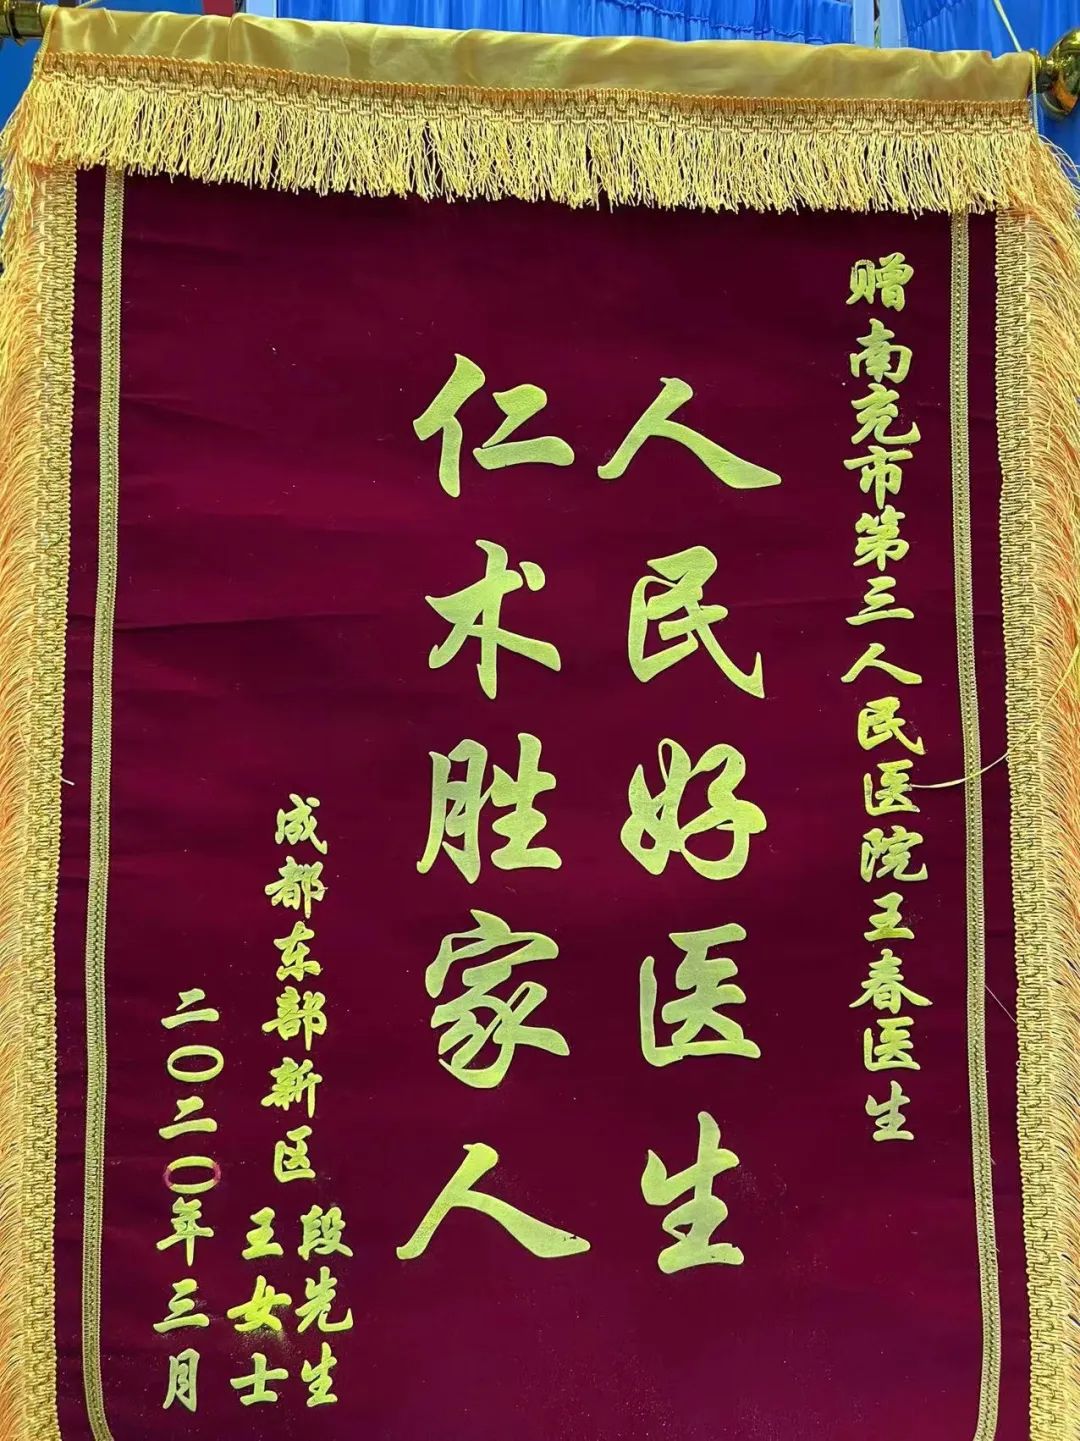 赠南充市第三人民医院王春医生
人民好医生
仁术胜家人
成都东部新区
段先生
王女士
二〇二〇年三月